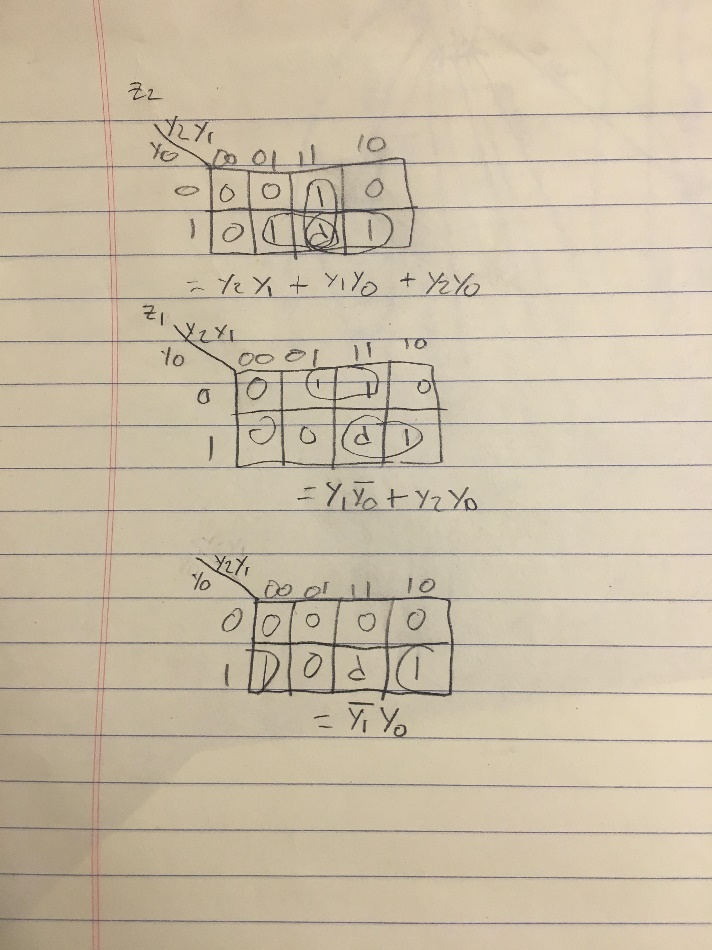 Z2
Y2Y1
Y0 00 01 11 10
0 0 0 1 0
1 0 1 d 1
= Y2Y1 + Y1Y0 + Y2Y0
Z1
Y2Y1
Y0 00 01 11 10
0 0 1 1 0
1 0 0 d 1
= Y1Y̅0̅ + Y2Y0
Y2Y1
Y0 00 01 11 10
0 0 0 0 0
1 1 0 d 1
= Y̅1̅ Y0